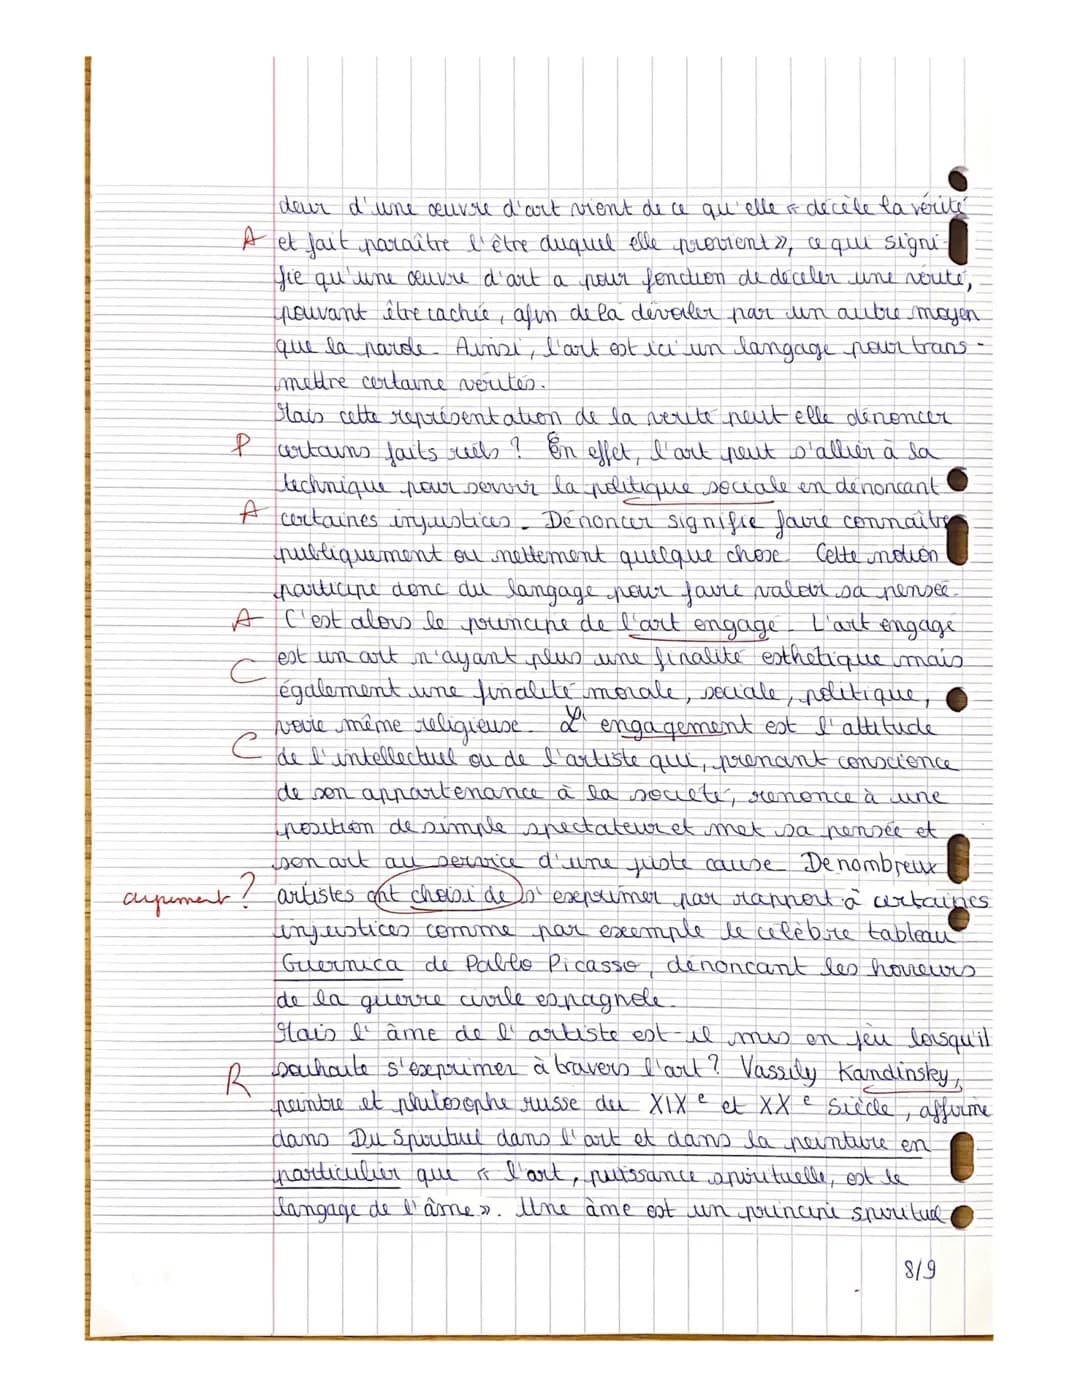 deur d'une œuvre d'art vient de ce qu'elle « décèle la vérité
A et fait paraître l'être duquel elle provient », ce qui signi-
fie qu'une œuvre d'art a pour fonction de déceler une vérité,
pouvant être cachée, afin de la dévoiler par un autre moyen
que la parole. Ainsi, l'art est ici un langage pour trans-
mettre certaine vérités.
Mais cette représentation de la vérité peut elle dénoncer
P certains faits réels ? En effet, l'art peut s'allier à la
technique pour servir la politique sociale en dénoncant
A certaines injustices. Dénoncer signifie faire connaître
publiquement ou nettement quelque chose. Cette notion
participe donc du langage pour faire valoir sa pensée.
A C'est alors le principe de l'art engagé. L'art engagé
C est un art n'ayant plus une finalité esthétique mais
également une finalité morale, sociale, politique,
voire même religieuse. L'engagement est l'attitude
C de l'intellectuel ou de l'artiste qui, prenant conscience
de son appartenance à la société, renonce à une
position de simple spectateur et met sa pensée et
son art au service d'une juste cause. De nombreux
argument ? artistes ont choisi de s'exprimer par rapport à certaines
injustices comme par exemple le célèbre tableau
Guernica de Pablo Picasso, dénoncant les horreurs
de la guerre civile espagnole.
Mais l'âme de l'artiste est-il mis en jeu lorsqu'il
R souhaite s'exprimer à travers l'art ? Vassily Kandinsky,
peintre et philosophe russe du XIXe et XXe siècle, affirme
dans Du Spirituel dans l'art et dans la peinture en
particulier que « l'art, puissance spirituelle, est le
langage de l'âme ». Une âme est un principe spirituel
8/9